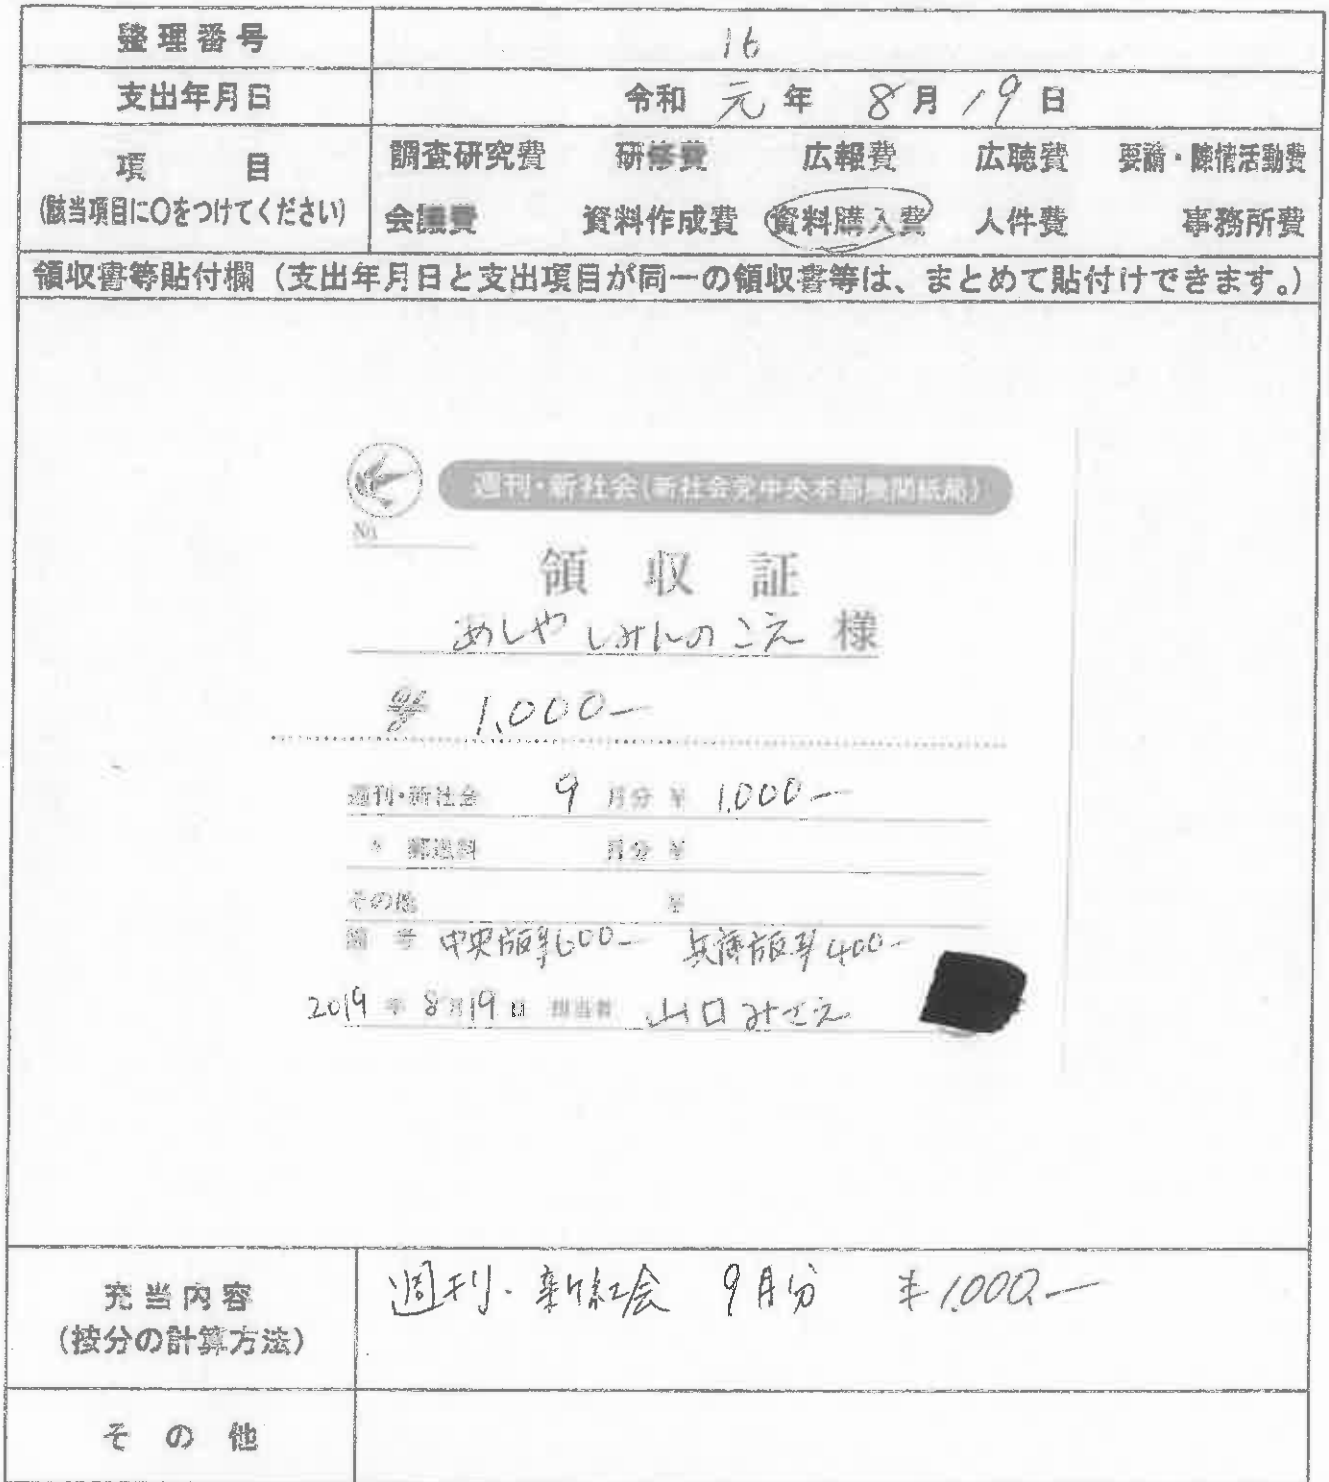 整理番号 16
支出年月日 令和 元 年 8 月 19 日
項目 調査研究費 研修費 広報費 広聴費 要請・陳情活動費
(該当項目に○をつけてください) 会議費 資料作成費 資料購入費 人件費 事務所費
領収書等貼付欄（支出年月日と支出項目が同一の領収書等は、まとめて貼付けできます。）
週刊・新社会(新社会党中央本部機関紙局)
No.
領収証
あしやしみんのこえ 様
¥ 1,000-
週刊・新社会 9 月分 ¥ 1,000-
〃 郵送料 月分 ¥
その他 ¥
備考 中央版¥600- 兵庫版¥400-
2019 年 8 月 19 日 担当者 山口みさえ
充当内容 週刊・新社会 9月分 ¥1,000-
(按分の計算方法)
その他